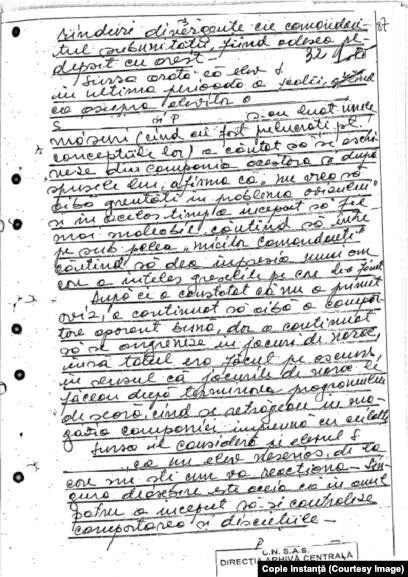 rînduri divergențe cu comandan-
tul subunității, fiind adesea pe-
depsit cu arest.
32
87
Sursa arată că elev S
în ultima perioadă a școlii,
că asupra elevilor
S P s-au luat unele
măsuri (cînd au fost
concepțiile lor) a căutat să se
din compania acestora și după
spusele lui, afirma că „nu vrea să
aibă greutăți în problema
și în același timp a început să fie
mai maleabil, căutînd să intre
pe sub pielea „micilor comandanți"
căutînd să dea impresia unui om
care a înțeles greșelile pe care le-a făcut
După ce a constatat că nu a primit
viză, a continuat să aibă o compor-
tare aparent bună, dar a continuat
să se angreneze în jocuri de noroc,
însă totul era făcut pe ascuns
în sensul că jocurile de noroc le
făceau după terminarea programului
de seară, cînd se retrăgeau în ma-
gazia companiei împreună cu
Sursa îl consideră pe elevul S
„ca un elev de ca-
re nu știi cum va reacționa. Sin-
gura deosebire este aceea că în anul
patru a început să-și controleze
comportarea și discuțiile.
C.N.S.A.S.
DIRECȚIA ARHIVĂ CENTRALĂ
Copie Instanță (Courtesy Image)